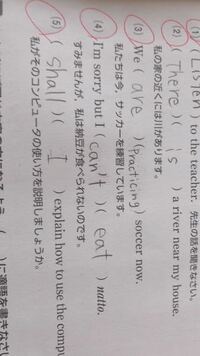 (1) (Listen) to the teacher. 先生の話を聞きなさい。
(2) (There)(is) a river near my house.
私の家の近くには川があります。
(3) We (are)(practicing) soccer now.
私たちは今、サッカーを練習しています。
(4) I'm sorry but I (can't)(eat) natto.
すみませんが、私は納豆が食べられないのです。
(5) (shall)(I) explain how to use the compu
私がそのコンピュータの使い方を説明しましょうか。
に適語を書きなさい